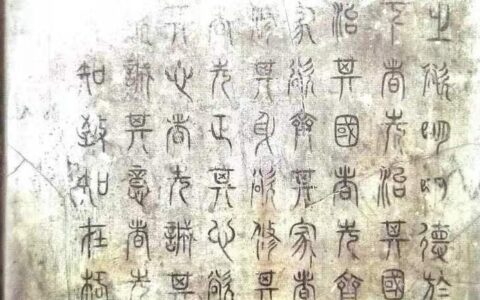 之欲明明德於
下者先治其國
治其國者先齊
家欲齊其家者
修其身欲修其
者先正其心欲
其心者先誠其
欲誠其意者先
知致知在格